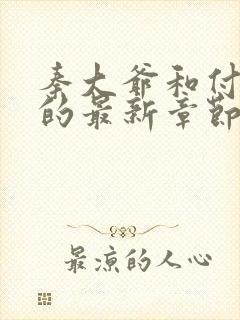 秦大爷和付
的最新章节
最凉的人心